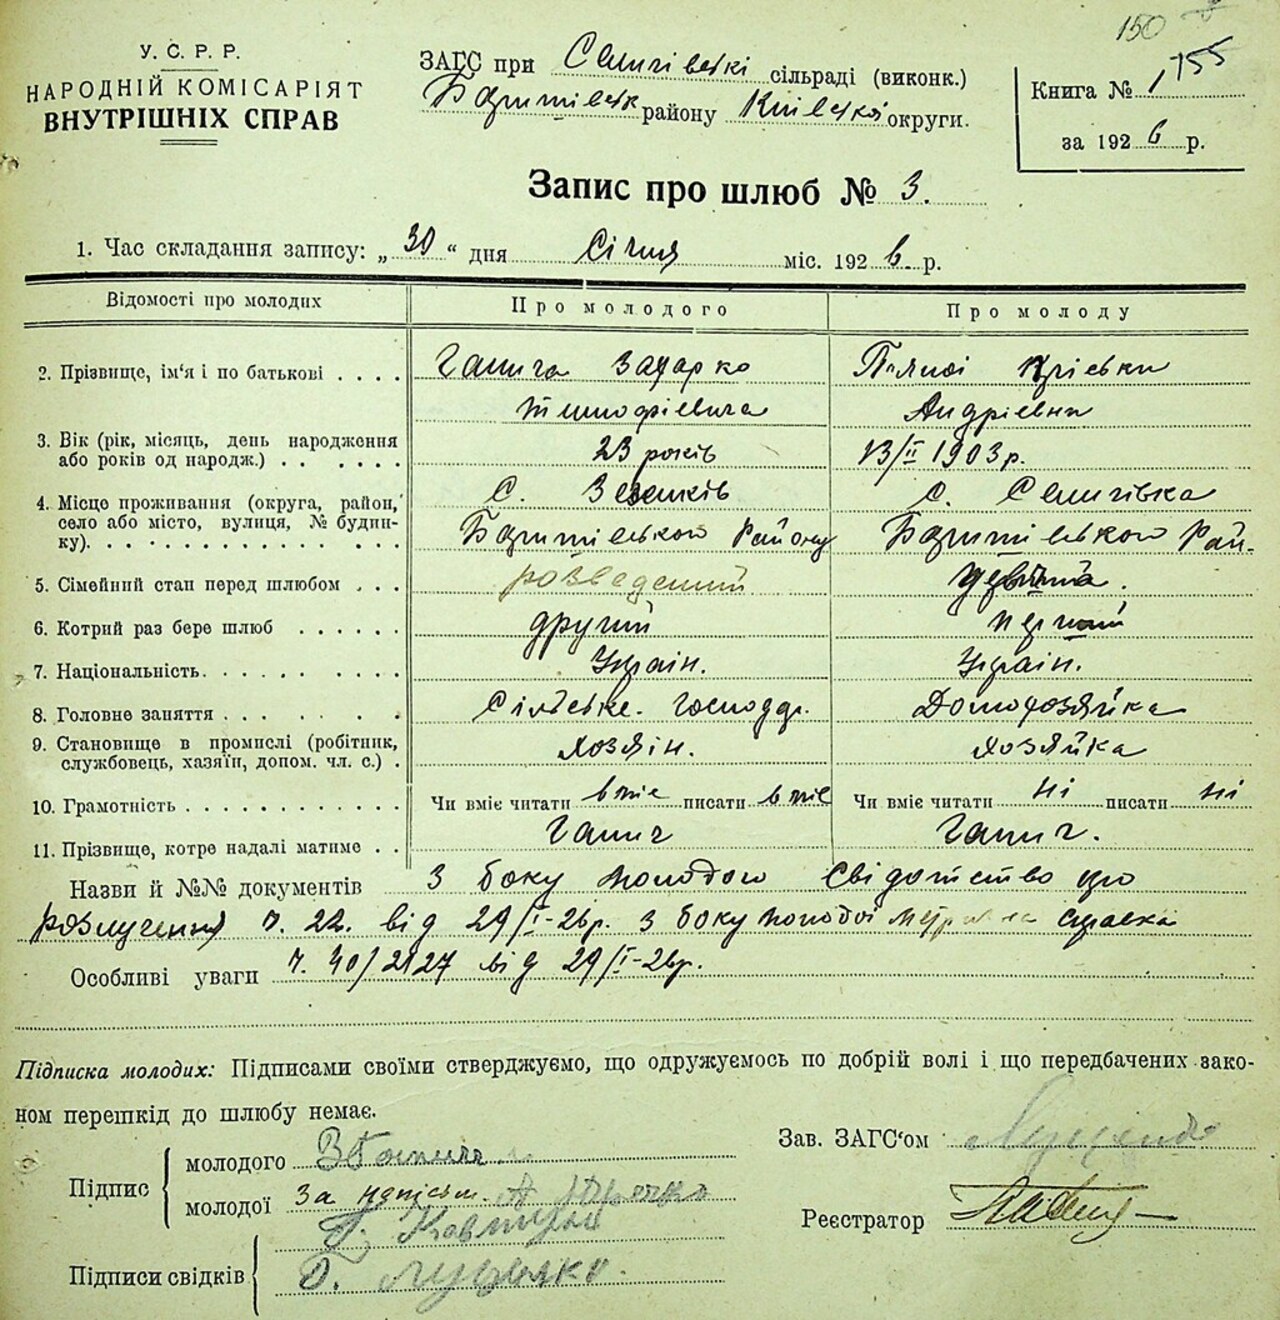 150
У. С. Р. Р.
НАРОДНІЙ КОМІСАРІЯТ
ВНУТРІШНІХ СПРАВ
ЗАГС при сільраді (виконк.)
району Київської округи.
Книга № 155
за 1926 р.
Запис про шлюб № 3.
1. Час складання запису: „30“ дня Січня міс. 1926. р.
Відомості про молодих Про молодого Про молоду
2. Прізвище, ім'я і по батькові . . . .
Ганича Захарко
Тимофієвича
Андріевни
3. Вік (рік, місяць, день народження або років од народж.) . . . . . .
23 років
13/II 1903 р.
4. Місце проживання (округа, район, село або місто, вулиця, № будинку). . . . . . . . . . . . . . .
с.
Району
с. Семигівка
Рай-
5. Сімейний стан перед шлюбом . . .
розведений
девиця.
6. Котрий раз бере шлюб . . . . . .
другий
перший
7. Національність. . . . . . . . . .
Україн.
Україн.
8. Головне заняття . . . . . . .
Сільське. господар.
Домохозяйка
9. Становище в промислі (робітник, службовець, хазяїн, допом. чл. с.) .
хозяін.
хозяйка
10. Грамотність . . . . . . . . . . .
Чи вміє читати вміє писати вміє
Чи вміє читати ні писати ні
11. Прізвище, котре надалі матиме . .
Ганич
Ганич.
Назви й №№ документів З боку молодого Свідотство про
розлучення ч. 22. від 29/I-26р. З боку молодої справка
Особливі уваги ч. 40/2127 від 29/I-26р.
Підписка молодих: Підписами своїми стверджуємо, що одружуємось по добрій волі і що передбачених зако-
ном перешкід до шлюбу немає.
Підпис
молодого
молодої за
Підписи свідків
Зав. ЗАГС'ом
Реєстратор